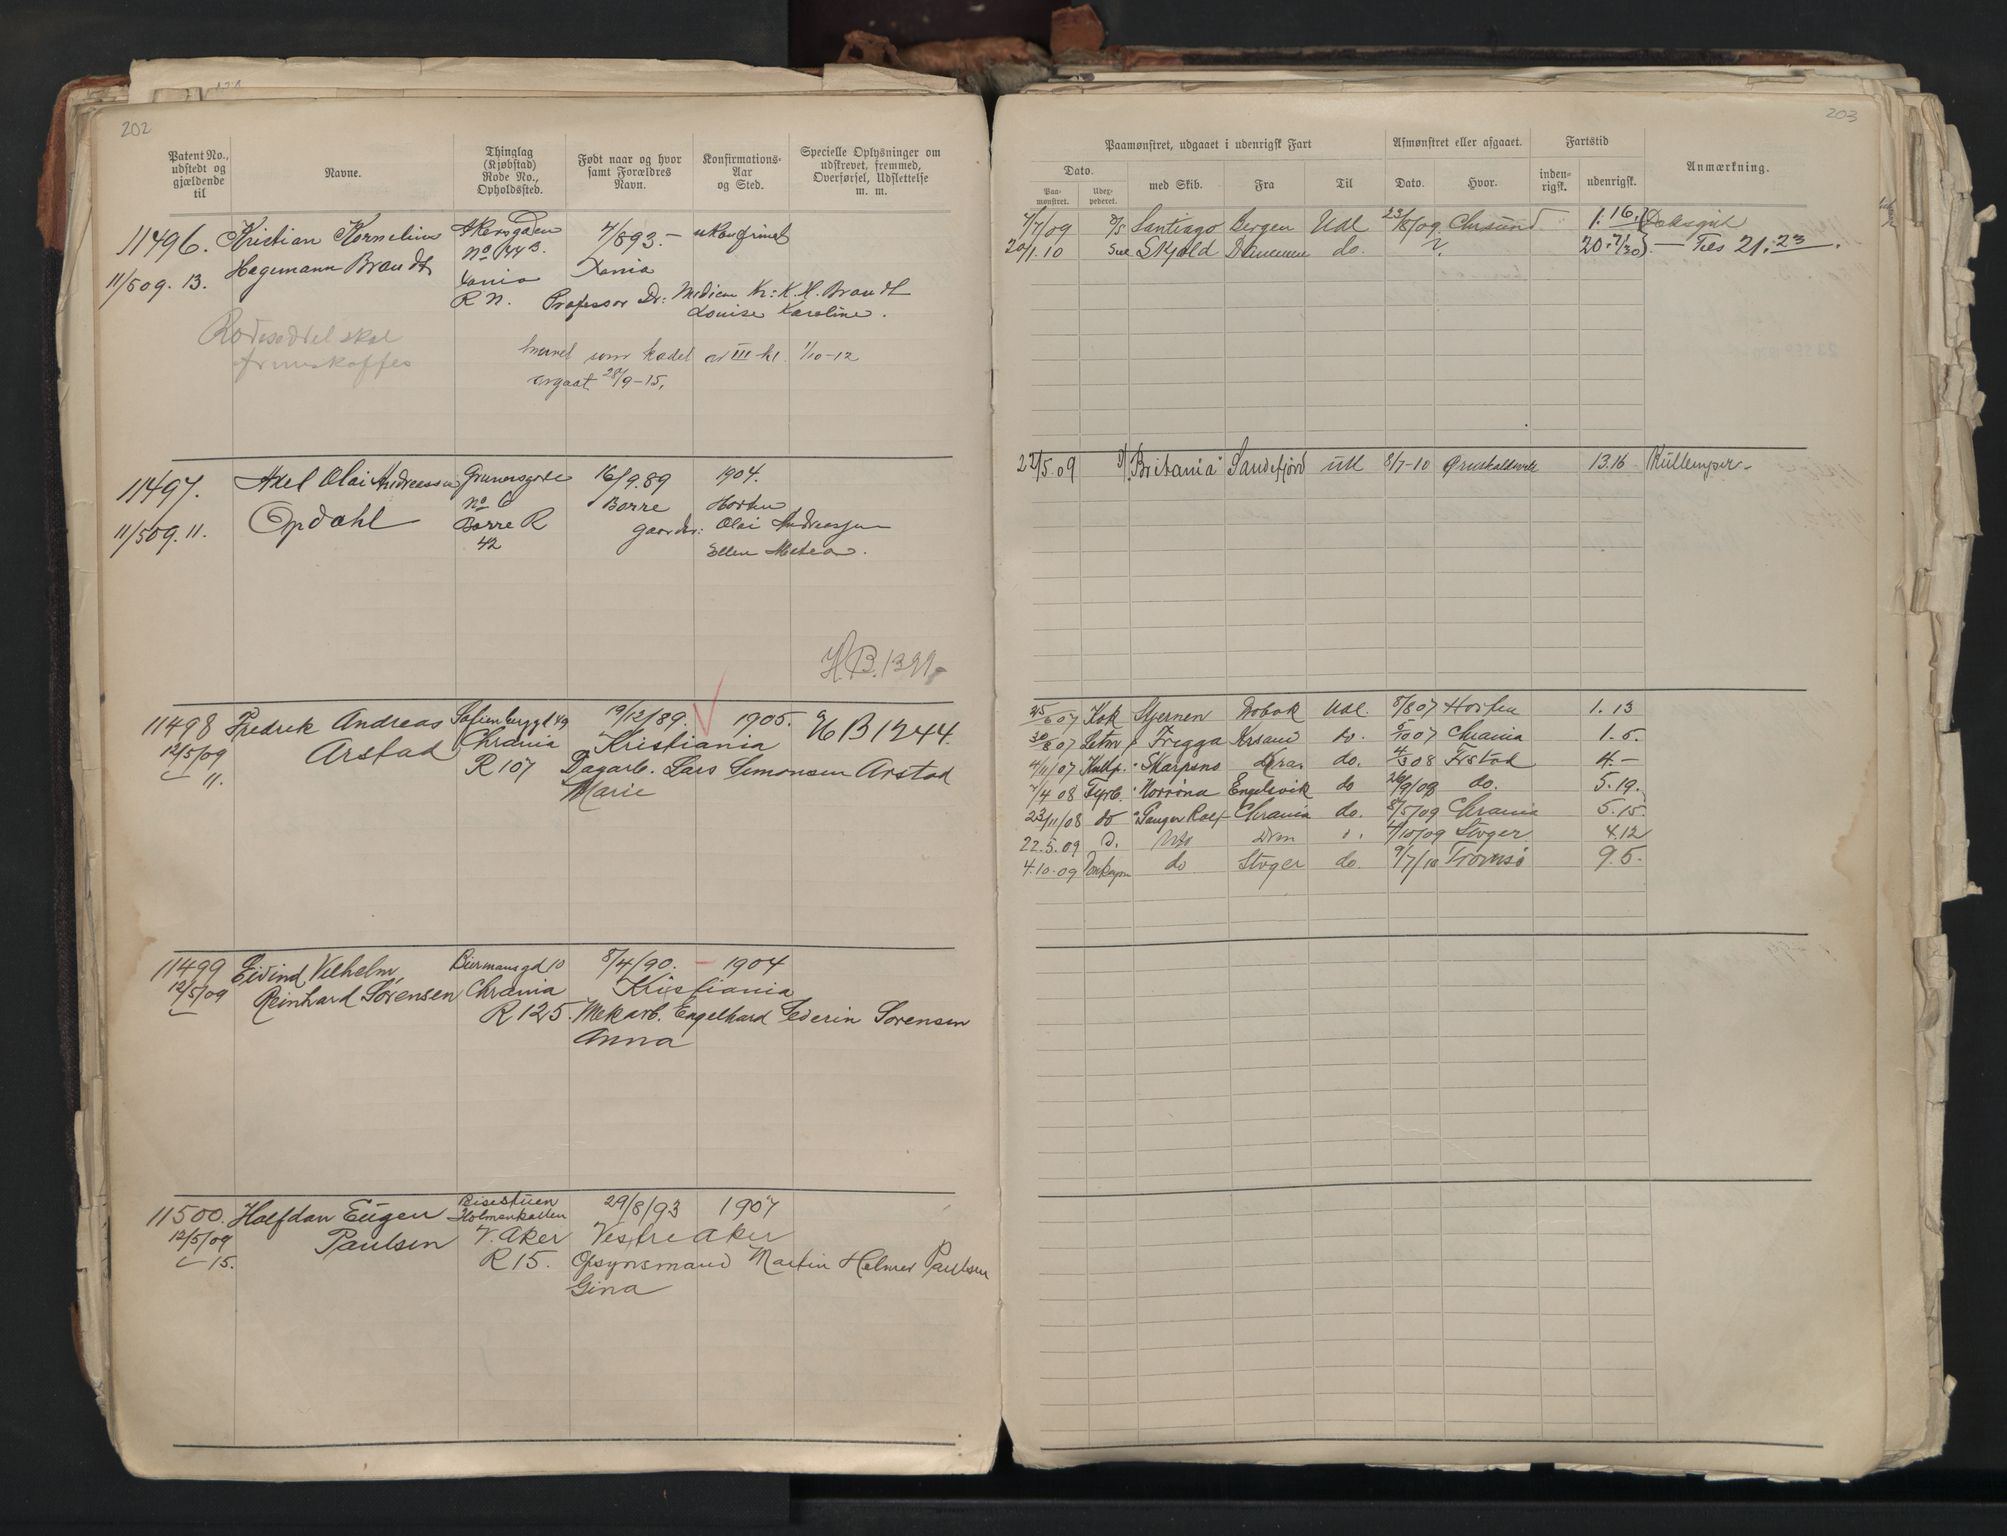 202
Patent No., udstedt og gjældende til
Navne.
Thinglag (Kjøbstad) Rode No., Opholdssted.
Født naar og hvor samt Forældres Navn.
Konfirmations-Aar og Sted.
Specielle Oplysninger om udskrevet, fremmed, Overførsel, Udslettelse m. m.
11496. Kristian Kornelius Akersgaden 4/893. – ukonfirmet
Hagemann Brandt No 44 B.
11/509. 13. Xania Xania
R N. Professor Dr: Medicin Kr: K. H. Brandt
Louise Karoline.
Rodeseddel skal
som kadet av III kl. 1/10-12
28/9-15.
11497. Axel Olai Andreassen 16/9.89 1904.
No 6 Borre Horten
11/509. 11. Opdahl Borre R Olai Andreassen
42 Ellen
H.B. 1399
11498 Fredrik Andreas Sofienberggd 49 19/12/89. 1905. U B 1244.
12/5/09 Arstad Chrania Kristiania
11. R 107 Dagarb. Lars Simonsen Arstad
Marie
11499 Eivind Vilhelm Biermansgd 10 8/4/90. – 1904
12/5/09 Reinhard Sørensen Chrania Kristiania
R 125. Mek arb. Engelhard Severin Sørensen
Anna
11500. Halfdan Eugen 29/8/93 1907
Holmenkollen
12/5/09 Paulsen V. Aker Vestre Aker
15. R 15. Opsynsmand Martin Helmer Paulsen
Gina
203
Paamønstret, udgaaet i udenrigsk Fart
Afmønstret eller afgaaet.
Fartstid
Anmærkning.
Dato.
Paa-mønstret.
Udex-pederet.
med Skib.
Fra
Til
Dato.
Hvor.
inden-rigsk.
udenrigsk.
7/7/09 Santiago Bergen Udl 23/8/09 Chrsund 1. 16. Dæksgut
20/1.10 Skjold do. ?. 20. 7/30 – Tils 21. 23.
22/5.09 "Britania" Sandefjord Udl 8/7-10 13.16 Kullemper
25/6 07 Kok Stjernen Drøbak Udl. 5/8 07 Horten 1. 13
30/8 07 Letm Frigga Krsand do. 5/10 07 Chrania 1. 5.
4/11/07 Kullp. Skarpsno do. 4/3 08 Frstad 4. –
7/4 08 Fyrb. Norrøna Engelsvik do 26/9/08 do. 5. 19.
23/11/08 do Ganger Rolf Chrania do. 8/5/09 Chrania 5. 15.
22.5.09 D. Drm 4/10/09 Stvger 4.12
4.10.09 Donkeym do Stvger do. 9/7/10 Tromsø 9. 5.